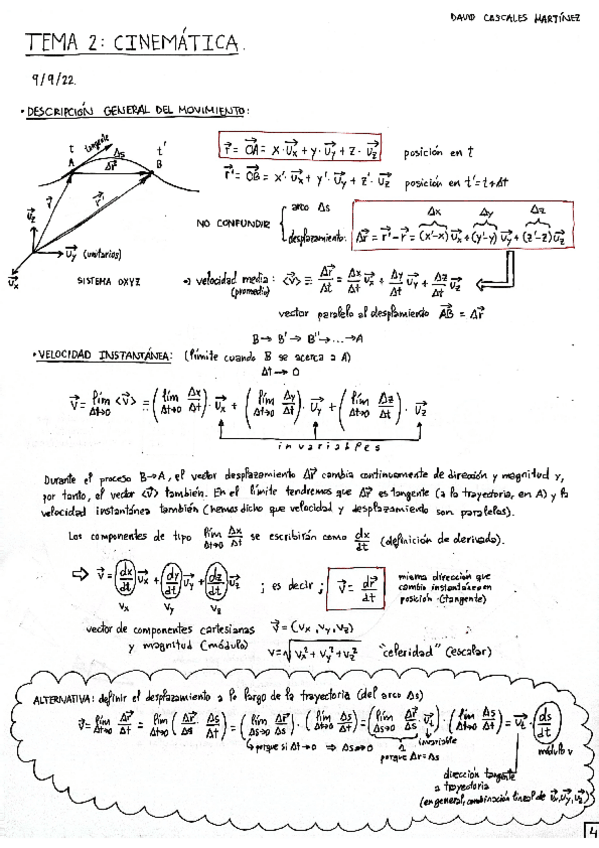 DAVID CASCALES MARTÍNEZ
TEMA 2: CINEMÁTICA.
9/9/22.
• DESCRIPCIÓN GENERAL DEL MOVIMIENTO:
t tangente Δs t'
A Δr⃗ B
r⃗ r⃗'
u⃗z
u⃗y (unitarios)
u⃗x
SISTEMA OXYZ
r⃗ = OA⃗ = x·u⃗x + y·u⃗y + z·u⃗z posición en t
r⃗' = OB⃗ = x'·u⃗x + y'·u⃗y + z'·u⃗z posición en t'=t+Δt
NO CONFUNDIR { arco Δs
Δx Δy Δz
desplazamiento: Δr⃗ = r⃗'-r⃗ = (x'-x)u⃗x+(y'-y)u⃗y+(z'-z)u⃗z
→ velocidad media: <v⃗> ≡ Δr⃗/Δt = Δx/Δt u⃗x + Δy/Δt u⃗y + Δz/Δt u⃗z
(promedio)
vector paralelo al desplamiento AB⃗ = Δr⃗
B→B'→B''→...→A
• VELOCIDAD INSTANTÁNEA: (límite cuando B se acerca a A)
Δt→0
v⃗ = lím Δt→0 <v⃗> = (lím Δt→0 Δx/Δt)·u⃗x + (lím Δt→0 Δy/Δt)·u⃗y + (lím Δt→0 Δz/Δt)·u⃗z
invariables
Durante el proceso B→A, el vector desplazamiento Δr⃗ cambia continuamente de dirección y magnitud y,
por tanto, el vector <v⃗> también. En el límite tendremos que Δr⃗ es tangente (a la trayectoria, en A) y la
velocidad instantánea también (hemos dicho que velocidad y desplazamiento son paralelos).
Las componentes de tipo lím Δt→0 Δx/Δt se escribirán como dx/dt (definición de derivada).
⇒ v⃗ = dx/dt u⃗x + dy/dt u⃗y + dz/dt u⃗z ; es decir ; v⃗ = dr⃗/dt misma dirección que
cambio instantáneo en
posición (tangente)
vx vy vz
vector de componentes cartesianas v⃗ = (vx, vy, vz)
y magnitud (módulo) v = √vx² + vy² + vz² "celeridad" (escalar)
ALTERNATIVA: definir el desplazamiento a lo largo de la trayectoria (del arco Δs)
v⃗ = lím Δt→0 Δr⃗/Δt = lím Δt→0 (Δr⃗/Δs · Δs/Δt) = (lím Δs→0 Δr⃗/Δs)·(lím Δt→0 Δs/Δt) = (lím Δs→0 Δr/Δs u⃗t)·(lím Δt→0 Δs/Δt) = u⃗t · ds/dt
↳ porque si Δt→0 ⇒ Δs→0 1 invariable módulo v
porque Δr≈Δs
dirección tangente
a trayectoria
(en general, combinación lineal de u⃗x, u⃗y, u⃗z)
4